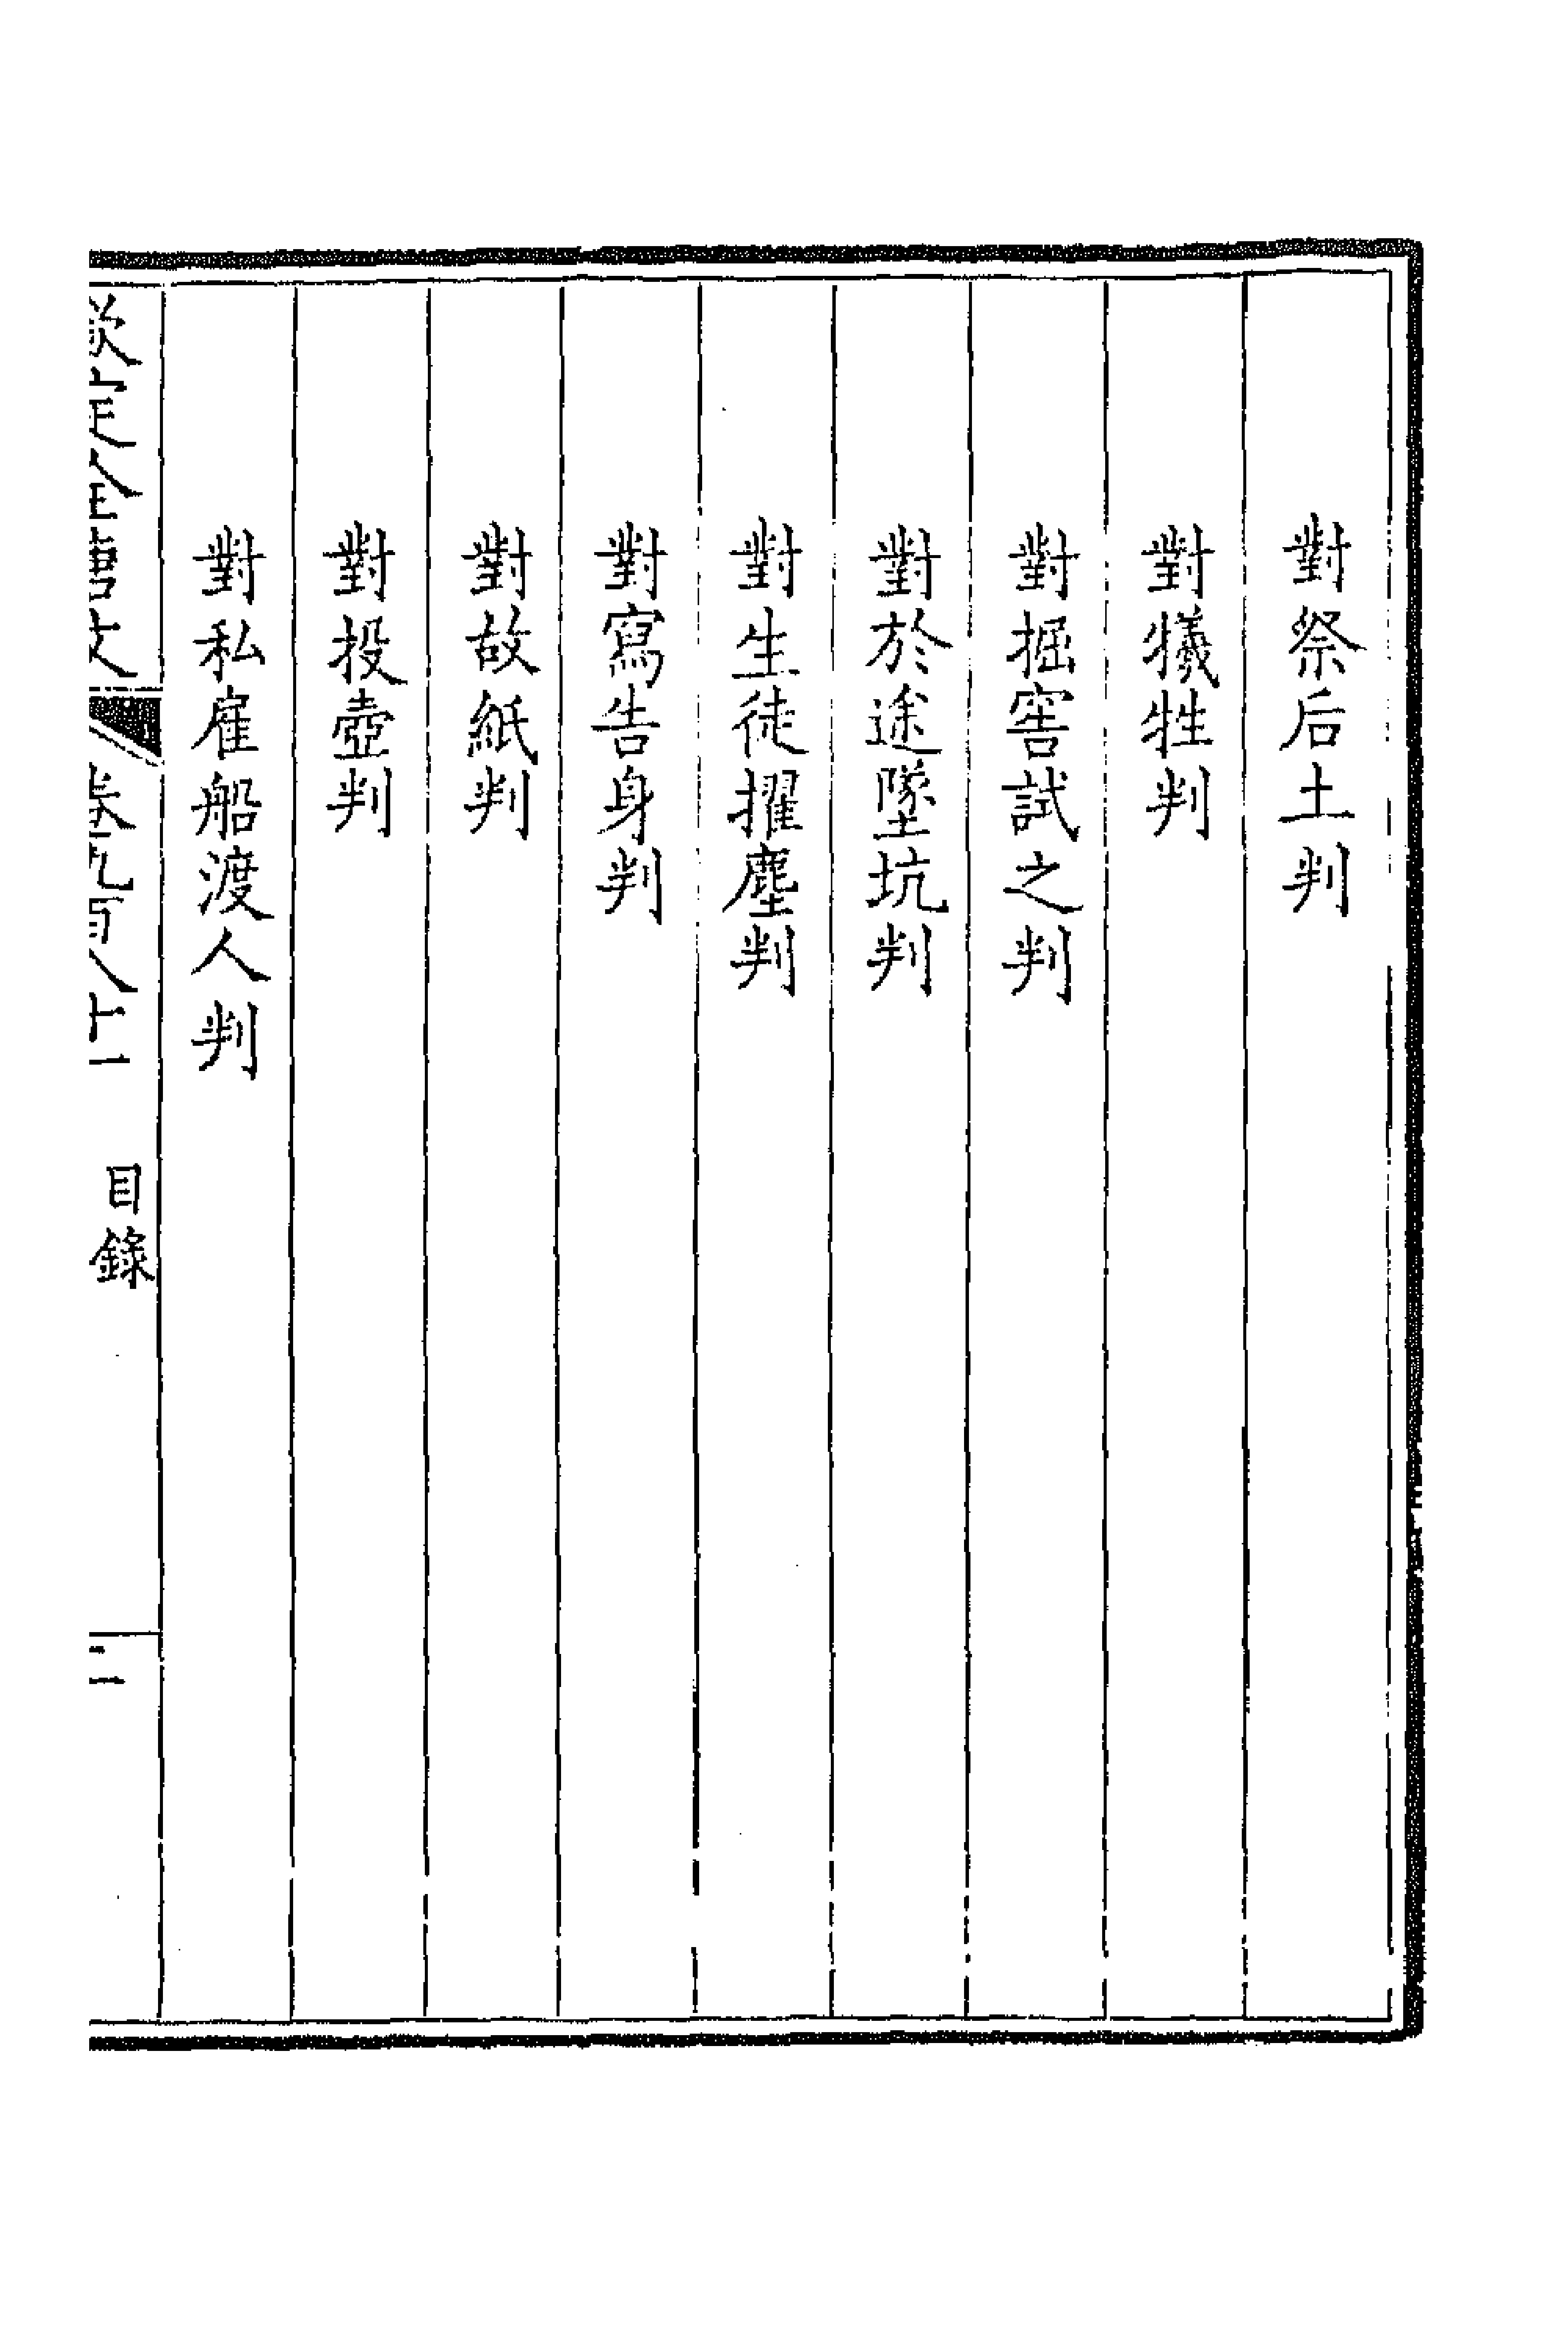 對祭后土判
對犧牲判
對掘窖試之判
對於途墜坑判
對生徒擢塵判
對寫告身判
對故紙判
對投壺判
對私雇船渡人判
欽定全唐文 卷九百八十一 目錄 二